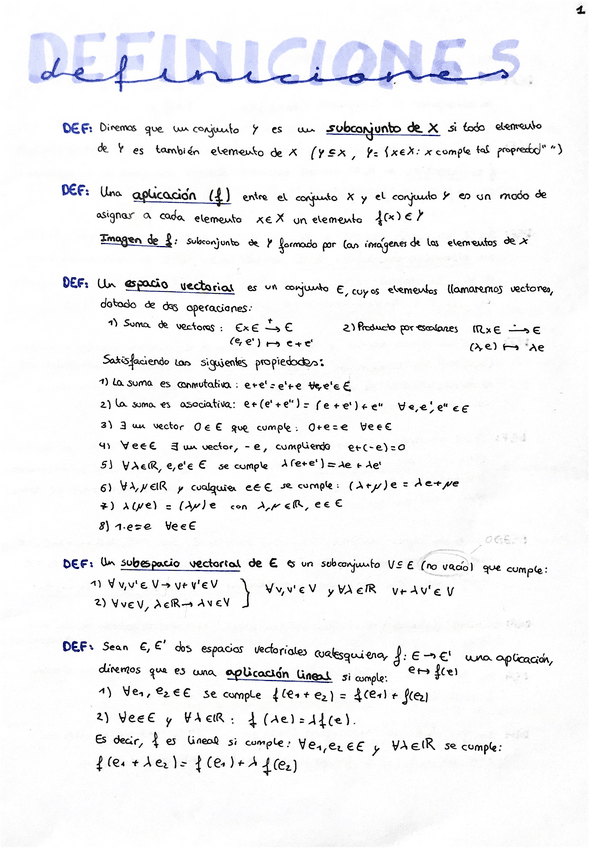 1
DEFINICIONES
definiciones
DEF: Diremos que un conjunto Y es un subconjunto de X si todo elemento
de Y es también elemento de X (Y⊆X, Y={x∈X: x cumple tal propiedad}" ")
DEF: Una aplicación (f) entre el conjunto X y el conjunto Y es un modo de
asignar a cada elemento x∈X un elemento f(x)∈Y
Imagen de f: subconjunto de Y formado por las imágenes de los elementos de X
DEF: Un espacio vectorial es un conjunto E, cuyos elementos llamaremos vectores,
dotado de dos operaciones:
1) Suma de vectores: E×E →⁺ E 2) Producto por escalares ℝ×E →˙ E
(e, e') ↦ e+e' (λ,e) ↦ λe
Satisfaciendo las siguientes propiedades:
1) La suma es conmutativa: e+e'=e'+e ∀e,e'∈E
2) La suma es asociativa: e+(e'+e")=(e+e')+e" ∀e,e',e"∈E
3) ∃ un vector 0∈E que cumple: 0+e=e ∀e∈E
4) ∀e∈E ∃ un vector, -e, cumpliendo e+(-e)=0
5) ∀λ∈ℝ, e,e'∈E se cumple λ(e+e')=λe+λe'
6) ∀λ,μ∈ℝ y cualquier e∈E se cumple: (λ+μ)e = λe+μe
7) λ(μe) = (λμ)e con λ,μ∈ℝ, e∈E
8) 1·e=e ∀e∈E
DEF: Un subespacio vectorial de E es un subconjunto V⊆E (no vacío) que cumple:
1) ∀v,v'∈V → v+v'∈V
2) ∀v∈V, λ∈ℝ → λv∈V } ∀v,v'∈V y ∀λ∈ℝ v+λv'∈V
DEF: Sean E, E' dos espacios vectoriales cualesquiera, f: E → E' una aplicación,
e ↦ f(e)
diremos que es una aplicación lineal si cumple:
1) ∀e₁, e₂∈E se cumple f(e₁+e₂) = f(e₁)+f(e₂)
2) ∀e∈E y ∀λ∈ℝ: f(λe)=λf(e).
Es decir, f es lineal si cumple: ∀e₁,e₂∈E y ∀λ∈ℝ se cumple:
f(e₁+λe₂)= f(e₁)+λf(e₂)